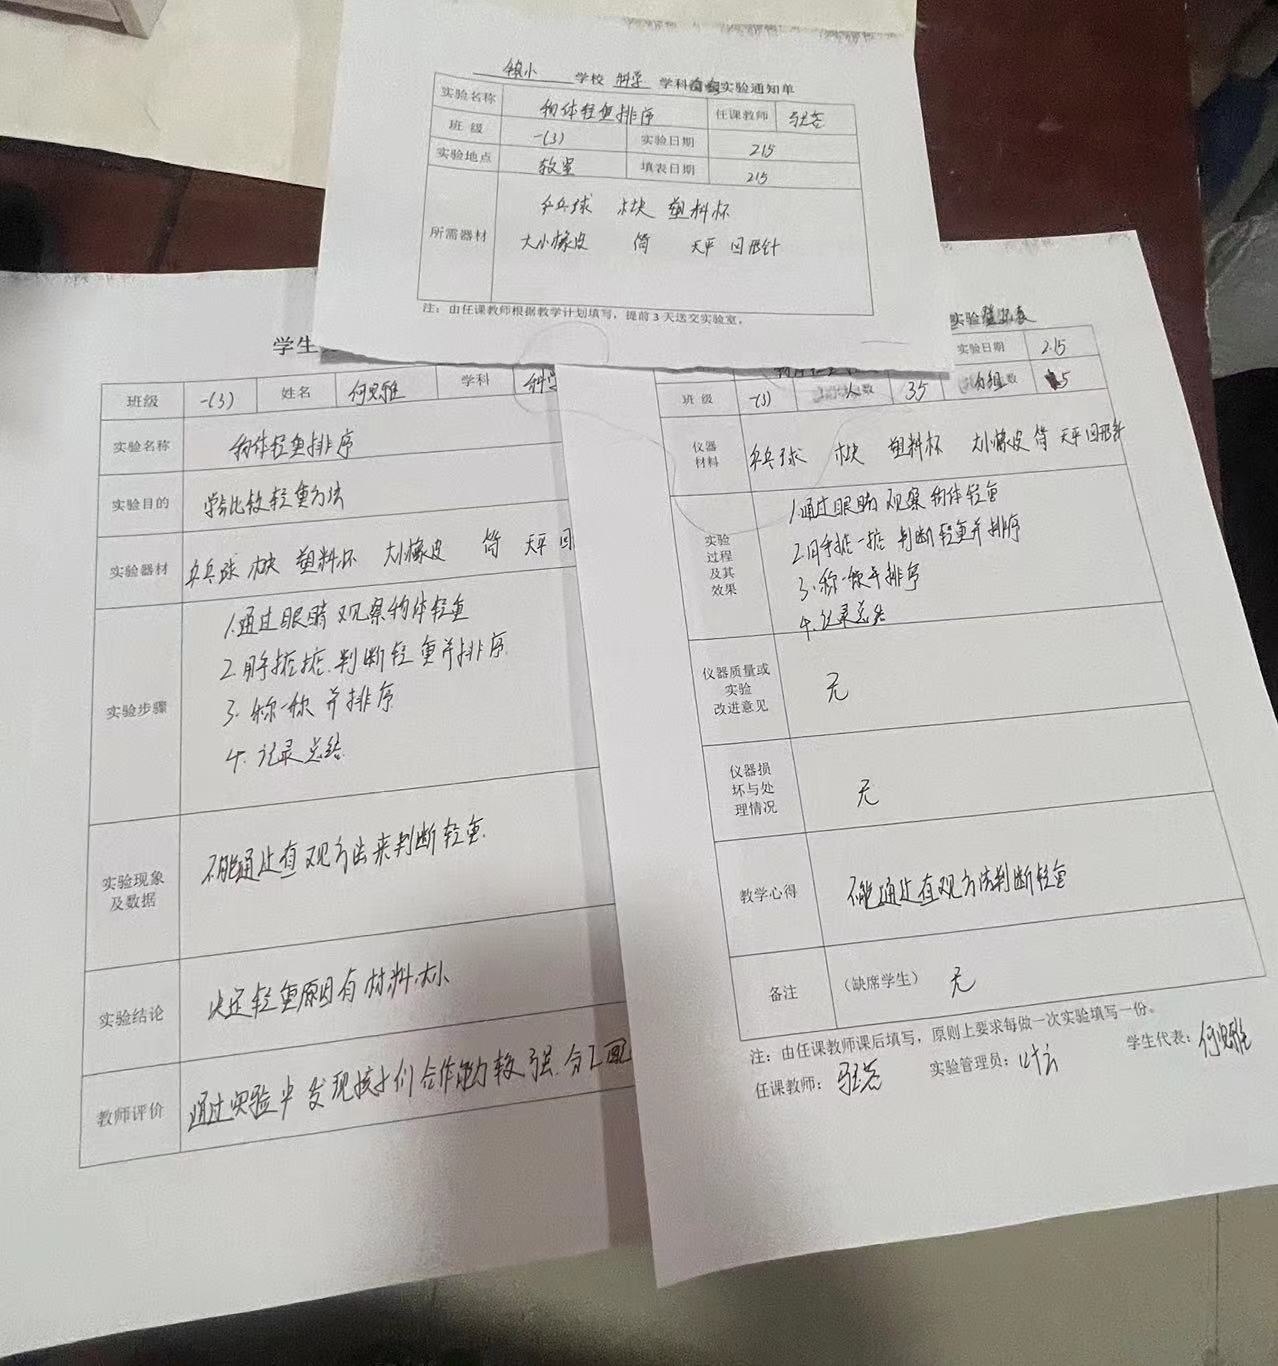 镇小 学校 科学 学科 实验通知单
实验名称 物体轻重排序 任课教师
班 级 一(3) 实验日期 2.15
实验地点 教室 填表日期 2.15
所需器材 乒乓球 木块 塑料杯
大小橡皮 筒 天平 回形针
注：由任课教师根据教学计划填写，提前3天送交实验室。
学生
班级 一(3) 姓名 何思雅 学科 科学
实验名称 物体轻重排序
实验目的 学会比较轻重方法
实验器材 乒乓球 木块 塑料杯 大小橡皮 筒 天平 回
实验步骤
1.通过眼睛观察物体轻重
2.用手掂掂.判断轻重并排序.
3.称一称并排序
4.记录总结.
实验现象及数据 不能通过直观方法来判断轻重.
实验结论 决定轻重原因有材料.大小
教师评价 通过实验中发现孩子们合作能力较强.分工
实验
实验日期 2.15
班 级 一(3) 人数 35 组数 5
仪器材料 乒乓球 木块 塑料杯 大小橡皮 筒 天平 回形针
实验过程及其效果
1.通过眼睛观察物体轻重
2.用手掂一掂 判断轻重并排序
3.称一称并排序
4.记录总结
仪器质量或实验改进意见 无
仪器损坏与处理情况 无
教学心得 不能通过直观方法判断轻重
备注 （缺席学生） 无
注：由任课教师课后填写，原则上要求每做一次实验填写一份。
任课教师： 实验管理员： 学生代表：何思雅